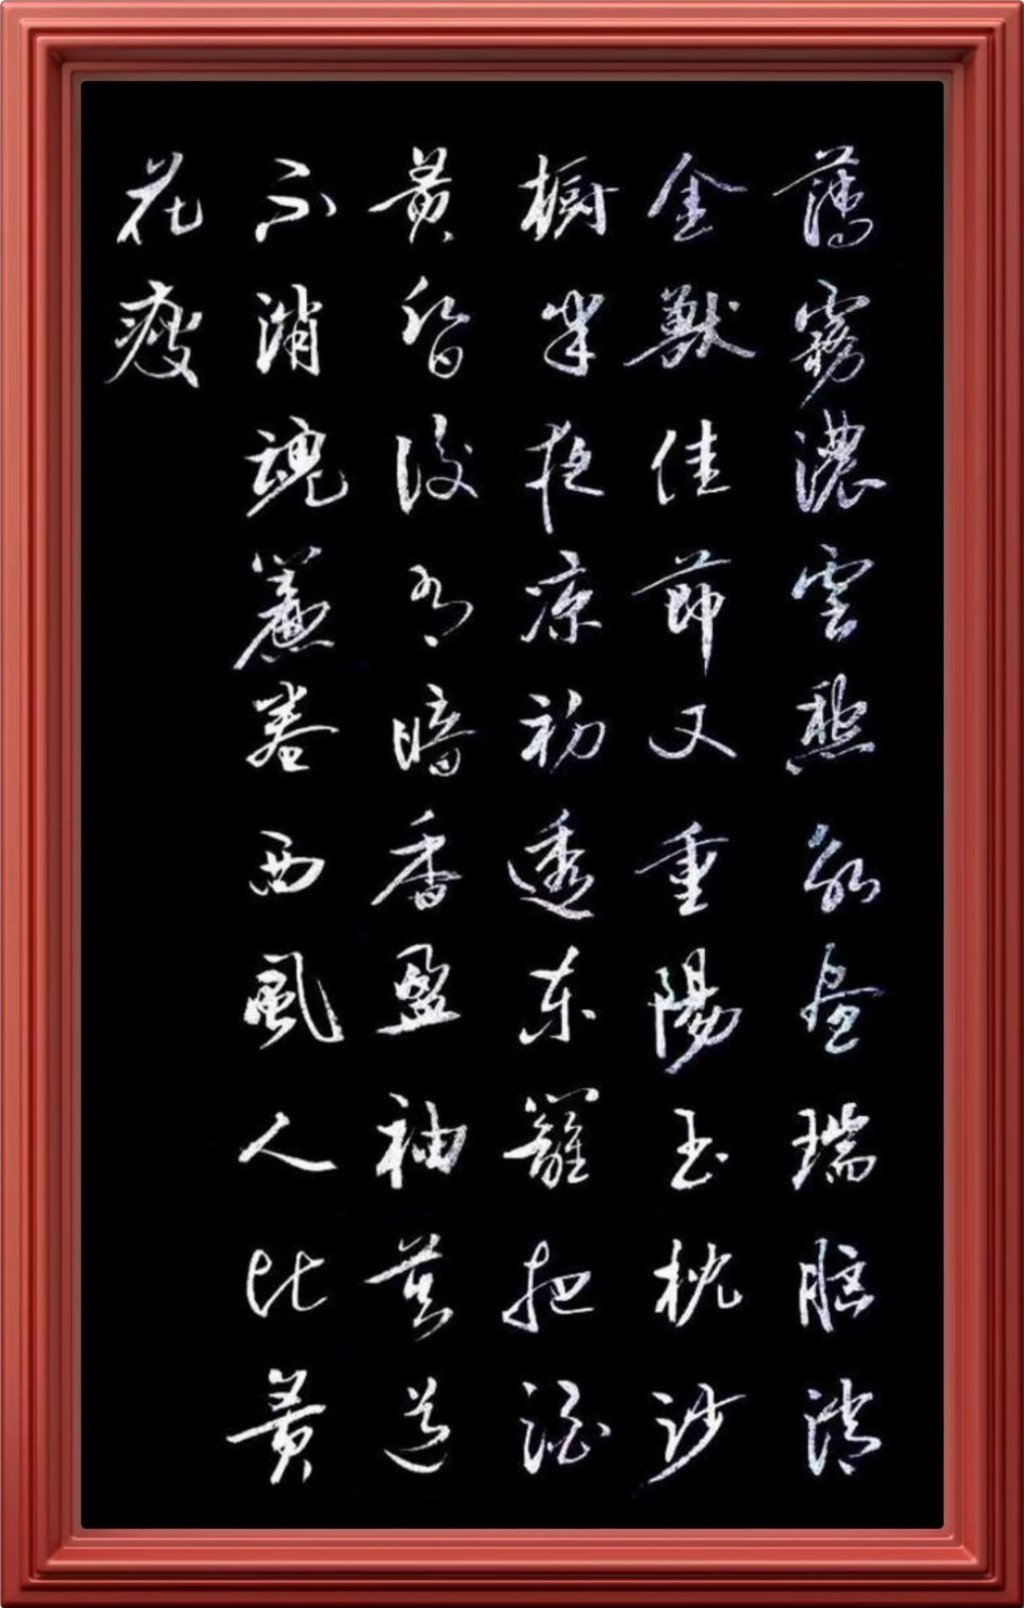 薄霧濃雲愁永晝瑞腦消
金獸佳節又重陽玉枕沙
橱半夜涼初透东籬把酒
黄昏後有暗香盈袖莫道
不消魂簾卷西風人比黄
花瘦